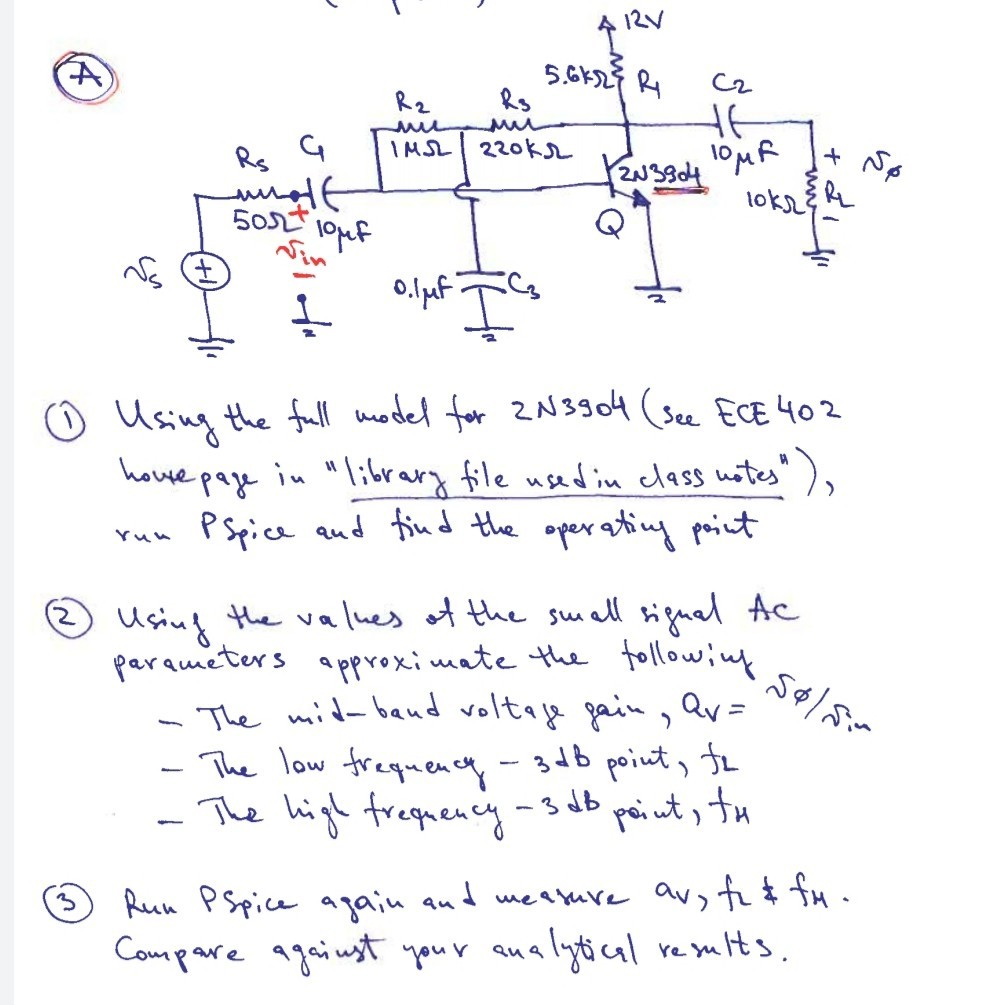 A
12V
5.6kΩ R1 C2
R2 R3
1MΩ 220kΩ
Rs C1
2N3904 10μF + vo
50Ω + 10μF
10kΩ RL
-
vin
-
Q
vs
0.1μF C3
① Using the full model for 2N3904 (see ECE 402
home page in "library file used in class notes"),
run PSpice and find the operating point
② Using the values of the small signal AC
parameters approximate the following
- The mid-band voltage gain, av = vo/vin
- The low frequency - 3db point, fL
- The high frequency - 3db point, fH
③ Run PSpice again and measure av, fL & fH.
Compare against your analytical results.